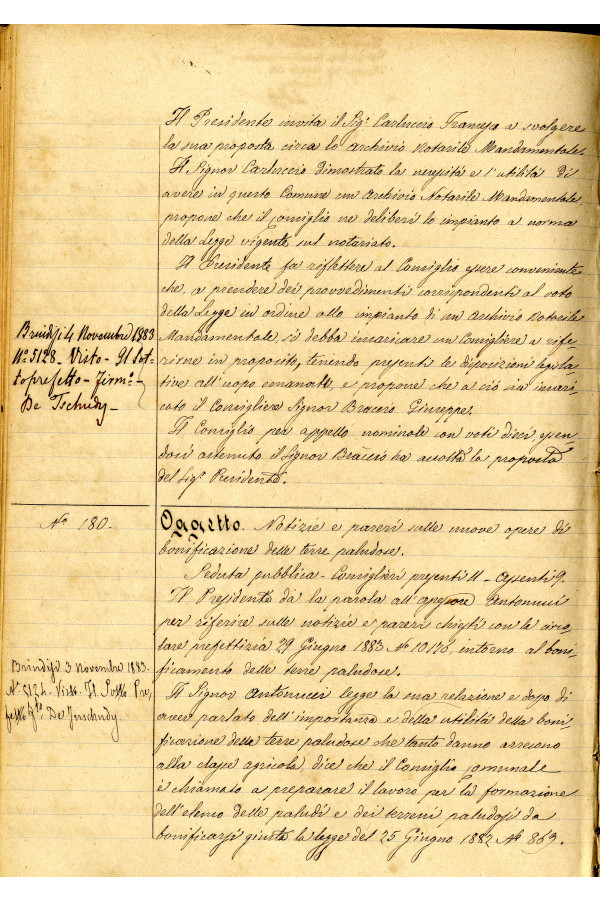 Il Presidente invita il Sigr. Carluccio Francesco a svolgere
la sua proposta circa lo Archivio Notarile Mandamentale.
Il Signor Carluccio dimostrato la necessità e l'utilità di
avere in questo Comune un Archivio Notarile Mandamentale,
propone che il Consiglio ne deliberi lo impianto a norma
della Legge vigente sul notariato.
Il Presidente fa riflettere al Consiglio essere conveniente
che, a prendere dei provvedimenti corrispondenti al voto
della Legge in ordine allo impianto di un Archivio Notarile
Mandamentale, si debba incaricare un Consigliere a rife-
rirne in proposito, tenendo presenti le disposizioni legisla-
tive all'uopo emanate, e propone che a ciò sia incari-
cato il Consigliere Signor Braccio Giuseppe.
Il Consiglio per appello nominale con voti dieci, essen-
dosi astenuto il Signor Braccio ha accolta la proposta
del Sigr. Presidente.
Brindisi 4 Novembre 1883
No. 5128. Visto - Il Sot-
toprefetto - Firmo. -
De Tschudy -
No. 180.
Oggetto. Notizie e pareri sulle nuove opere di
bonificazione delle terre paludose.
Seduta pubblica - Consiglieri presenti 11 - Assenti 9.
Il Presidente dà la parola all'assessore Antonucci
per riferire sulle notizie e pareri chiesti con la circo-
lare prefettizia 29 Giugno 1883 No. 10176, intorno al boni-
ficamento delle terre paludose.
Il Signor Antonucci legge la sua relazione e dopo di
aver parlato dell'importanza e della utilità della boni-
ficazione delle terre paludose che tanto danno arrecono
alla classe agricola, dice che il Consiglio Comunale
è chiamato a preparare il lavoro per la formazione
dell'elenco delle paludi e dei terreni paludosi da
bonificarsi giusta la legge del 25 Giugno 1882 No. 869.
Brindisi 3 Novembre 1883.
No. 5124 - Visto. Il Sotto Pre-
fetto fto De Tschudy.